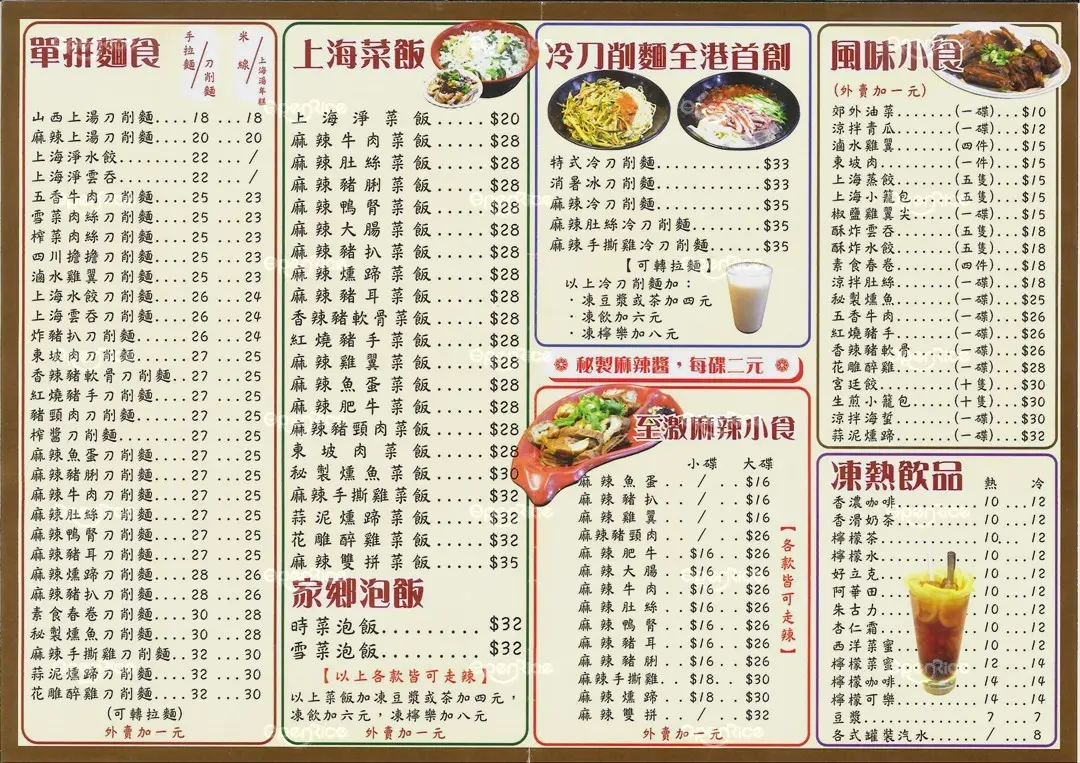 單拼麵食
手拉麵/刀削麵
米線/上海湯年糕
山西上湯刀削麵....18...18
麻辣上湯刀削麵....20...20
上海淨水餃.........22.../
上海淨雲吞.........22.../
五香牛肉刀削麵....25...23
雪菜肉絲刀削麵....25...23
榨菜肉絲刀削麵....25...23
四川擔擔刀削麵....25...23
滷水雞翼刀削麵....25...23
上海水餃刀削麵....26...24
上海雲吞刀削麵....26...24
炸豬扒刀削麵.......26...24
東坡肉刀削麵.......27...25
香辣豬軟骨刀削麵..27...25
紅燒豬手刀削麵....27...25
豬頸肉刀削麵.......27...25
榨醬刀削麵.........27...25
麻辣魚蛋刀削麵....27...25
麻辣豬脷刀削麵....27...25
麻辣牛肉刀削麵....27...25
麻辣肚絲刀削麵....27...25
麻辣鴨腎刀削麵....27...25
麻辣豬耳刀削麵....27...25
麻辣燻蹄刀削麵....28...26
麻辣豬扒刀削麵....28...26
素食春卷刀削麵....30...28
秘製燻魚刀削麵....30...28
麻辣手撕雞刀削麵..32...30
蒜泥燻蹄刀削麵....32...30
花雕醉雞刀削麵....32...30
(可轉拉麵)
外賣加一元
上海菜飯
上海淨菜飯......$20
麻辣牛肉菜飯......$28
麻辣肚絲菜飯......$28
麻辣豬脷菜飯......$28
麻辣鴨腎菜飯......$28
麻辣大腸菜飯......$28
麻辣豬扒菜飯......$28
麻辣燻蹄菜飯......$28
麻辣豬耳菜飯......$28
香辣豬軟骨菜飯......$28
紅燒豬手菜飯......$28
麻辣雞翼菜飯......$28
麻辣魚蛋菜飯......$28
麻辣肥牛菜飯......$28
麻辣豬頸肉菜飯......$28
東坡肉菜飯......$28
秘製燻魚菜飯......$30
麻辣手撕雞菜飯......$32
蒜泥燻蹄菜飯......$32
花雕醉雞菜飯......$32
麻辣雙拼菜飯......$35
家鄉泡飯
時菜泡飯.........$32
雪菜泡飯.........$32
【以上各款皆可走辣】
以上菜飯加凍豆漿或茶加四元，
凍飲加六元，凍檸樂加八元
外賣加一元
冷刀削麵全港首創
特式冷刀削麵...........$33
消暑冰刀削麵...........$33
麻辣冷刀削麵...........$35
麻辣肚絲冷刀削麵.......$35
麻辣手撕雞冷刀削麵......$35
【可轉拉麵】
以上冷刀削麵加：
·凍豆漿或茶加四元
·凍飲加六元
·凍檸樂加八元
秘製麻辣醬，每碟二元
至激麻辣小食
小碟 大碟
麻辣魚蛋../..$16
麻辣豬扒../..$16
麻辣雞翼../..$16
麻辣豬頸肉../..$26
麻辣肥牛..$16..$26
麻辣大腸..$16..$26
麻辣牛肉..$16..$26
麻辣肚絲..$16..$26
麻辣鴨腎..$16..$26
麻辣豬耳..$16..$26
麻辣豬脷..$16..$26
麻辣手撕雞..$18..$30
麻辣燻蹄..$18..$30
麻辣雙拼../..$32
【各款皆可走辣】
外賣加一元
風味小食
(外賣加一元)
郊外油菜......(一碟)...$10
涼拌青瓜......(一碟)...$12
滷水雞翼......(四件)...$15
東坡肉.........(一件)...$15
上海蒸餃......(五隻)...$15
上海小籠包....(五隻)...$15
椒鹽雞翼尖....(一碟)...$15
酥炸雲吞......(五隻)...$18
酥炸水餃......(五隻)...$18
素食春卷......(四件)...$18
涼拌肚絲......(一碟)...$18
秘製燻魚......(一碟)...$25
五香牛肉......(一碟)...$26
紅燒豬手......(一碟)...$26
香辣豬軟骨....(一碟)...$26
花雕醉雞......(一碟)...$28
宮廷餃.........(十隻)...$30
生煎小籠包....(十隻)...$30
涼拌海蜇......(一碟)...$30
蒜泥燻蹄......(一碟)...$32
凍熱飲品
熱 冷
香濃咖啡.........10...12
香滑奶茶.........10...12
檸檬茶...........10...12
檸檬水...........10...12
好立克...........10...12
阿華田...........10...12
朱古力...........10...12
杏仁霜...........10...12
西洋菜蜜.........10...12
檸檬菜蜜.........12...14
檸檬咖啡.........14...14
檸檬可樂.........14...14
豆漿.............7...7
各式罐裝汽水....../...8
OpenRice